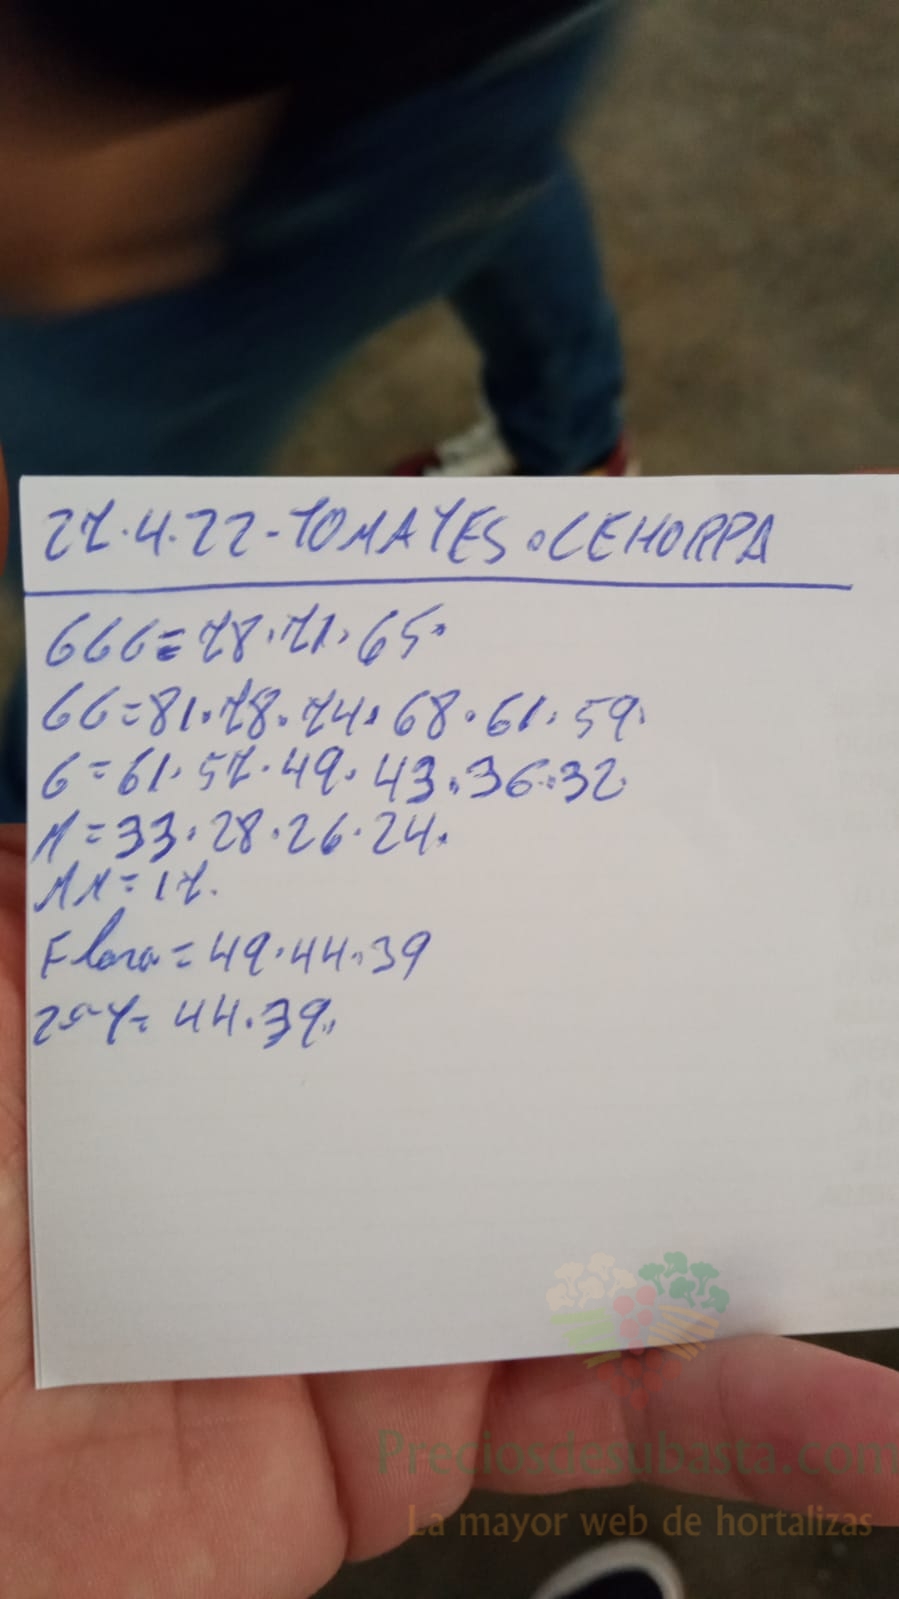 27.4.22-TOMATES.CEHORPA
GGG=78.71.65.
GG=81.78.74.68.61.59.
G=61.57.49.43.36.32.
M=33.28.26.24.
MM=17.
Flora=49.44.39
2ªY=44.39.
Preciosdesubasta.com
La mayor web de hortalizas